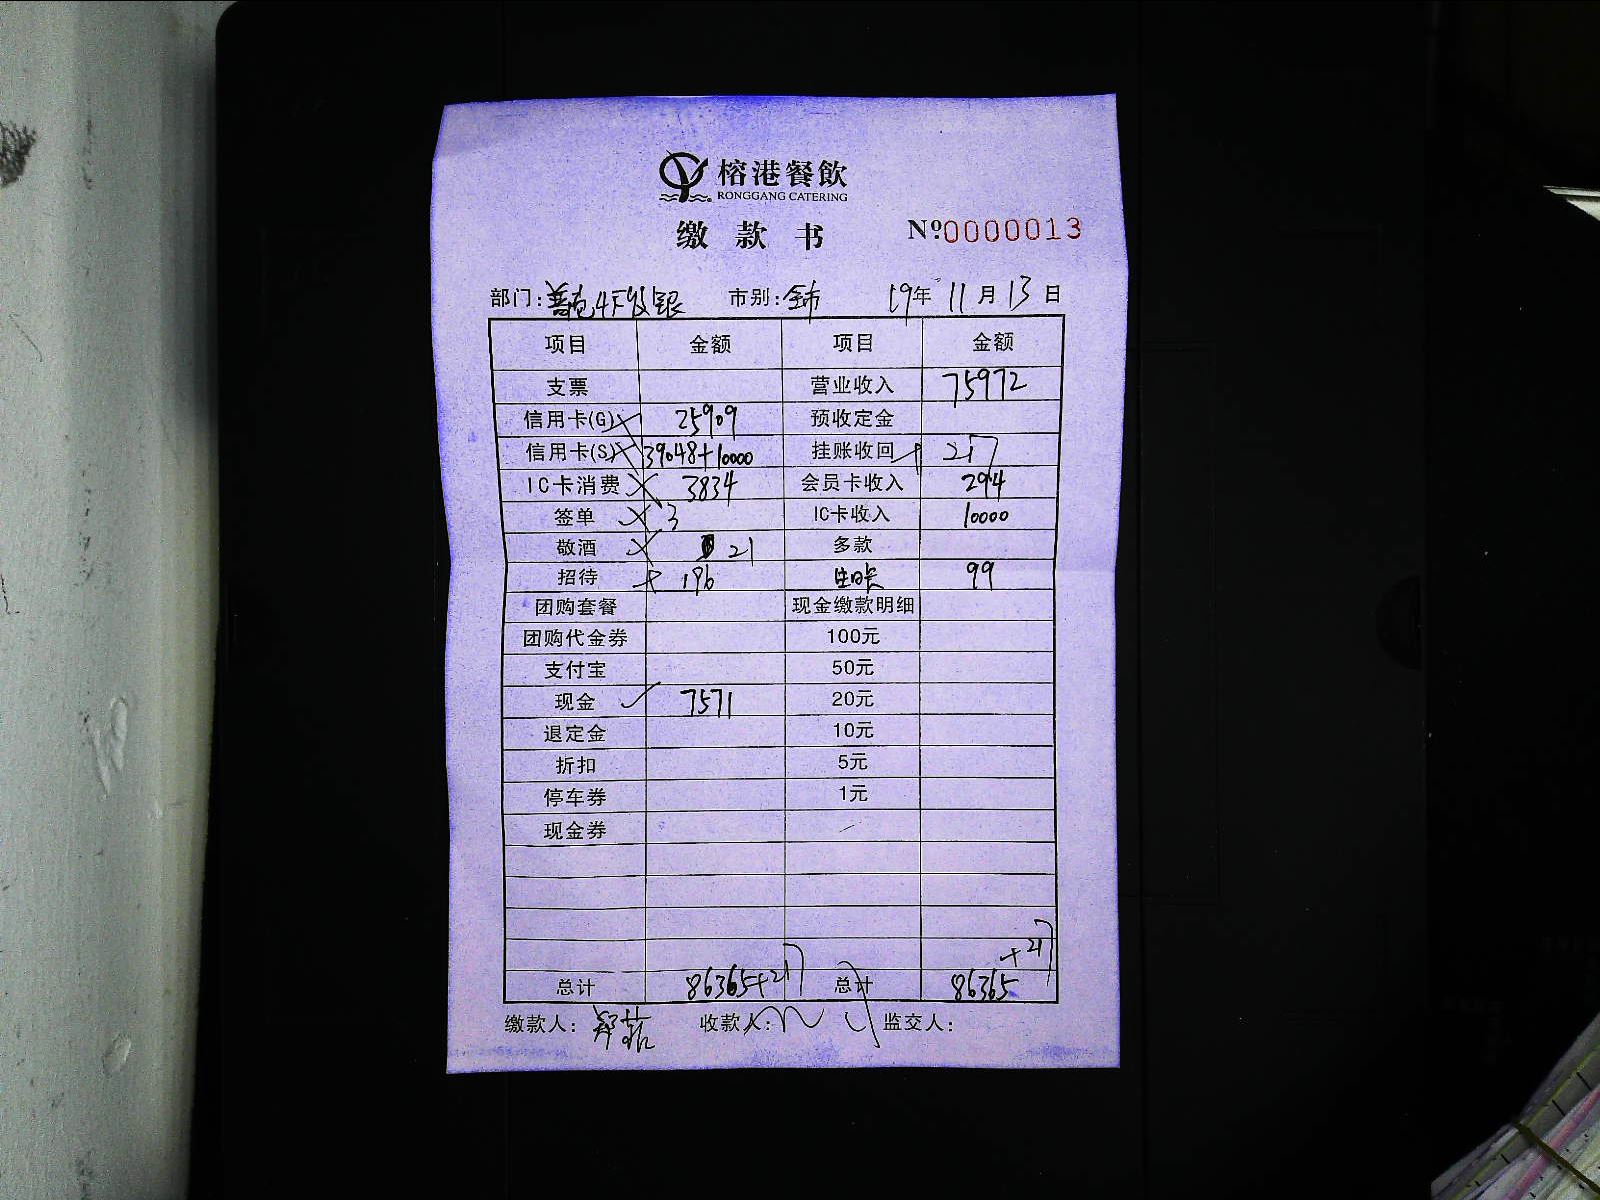 榕港餐飲
RONGGANG CATERING
缴款书 Nº0000013
部门: 市别:全市 19年11月13日
项目 金额 项目 金额
支票 营业收入 75972
信用卡(G) 25909 预收定金
信用卡(S) 39048+10000 挂账收回 21
IC卡消费 3834 会员卡收入 294
签单 3 IC卡收入 10000
敬酒 21 多款
招待 196 99
团购套餐 现金缴款明细
团购代金券 100元
支付宝 50元
现金 7571 20元
退定金 10元
折扣 5元
停车券 1元
现金券
+21
总计 86365+21 总计 86365
缴款人: 收款人: 监交人: